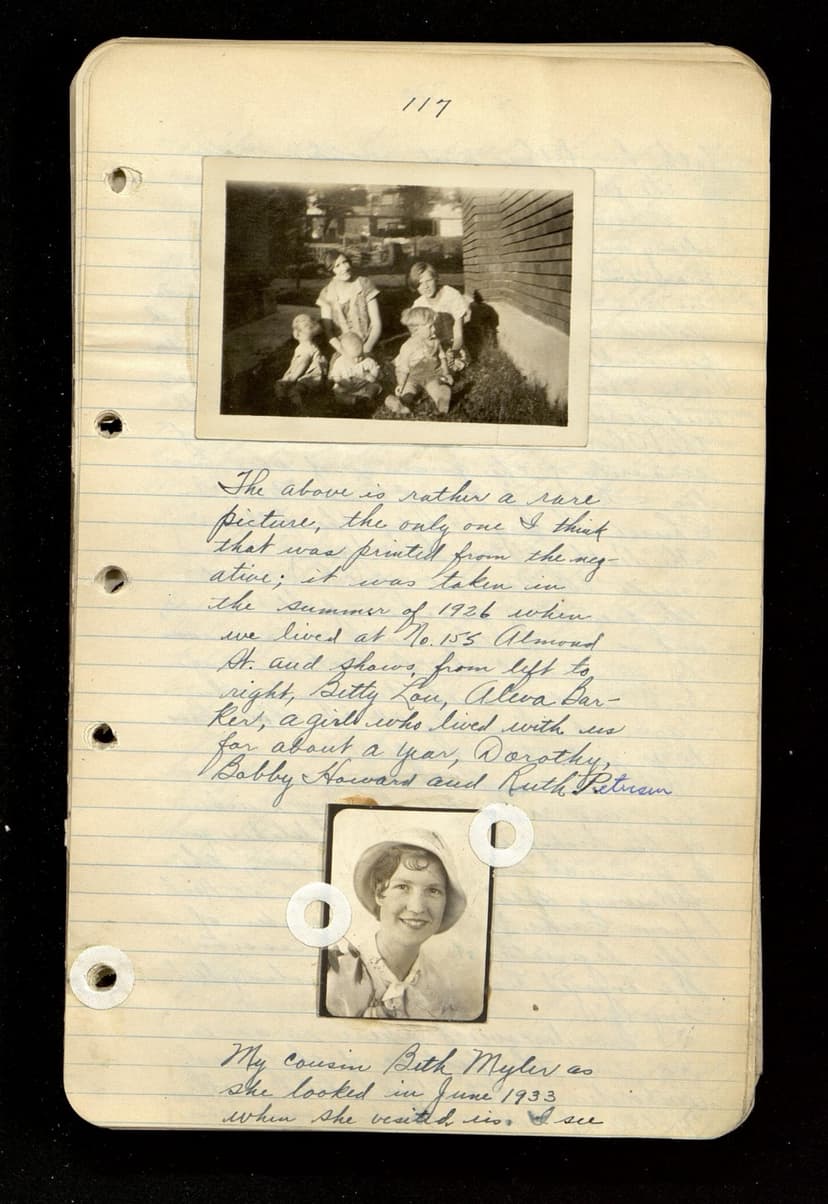 117
The above is rather a rare
picture, the only one I think
that was printed from the neg-
ative; it was taken in
the summer of 1926 when
we lived at No. 155 Almond
St. and shows, from left to
right, Betty Lou, Aleva Bar-
ker, a girl who lived with us
for about a year, Dorothy,
Bobby Howard and Ruth Peterson
My cousin Beth Myler as
she looked in June 1933
when she visited us. I see